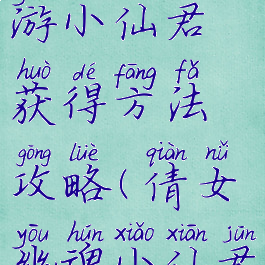 游小仙君
huò dé fāng fǎ
获得方法
gōng lüè qiàn nǚ
攻略(倩女
yōu hún xiǎo xiān jūn
幽魂小仙君